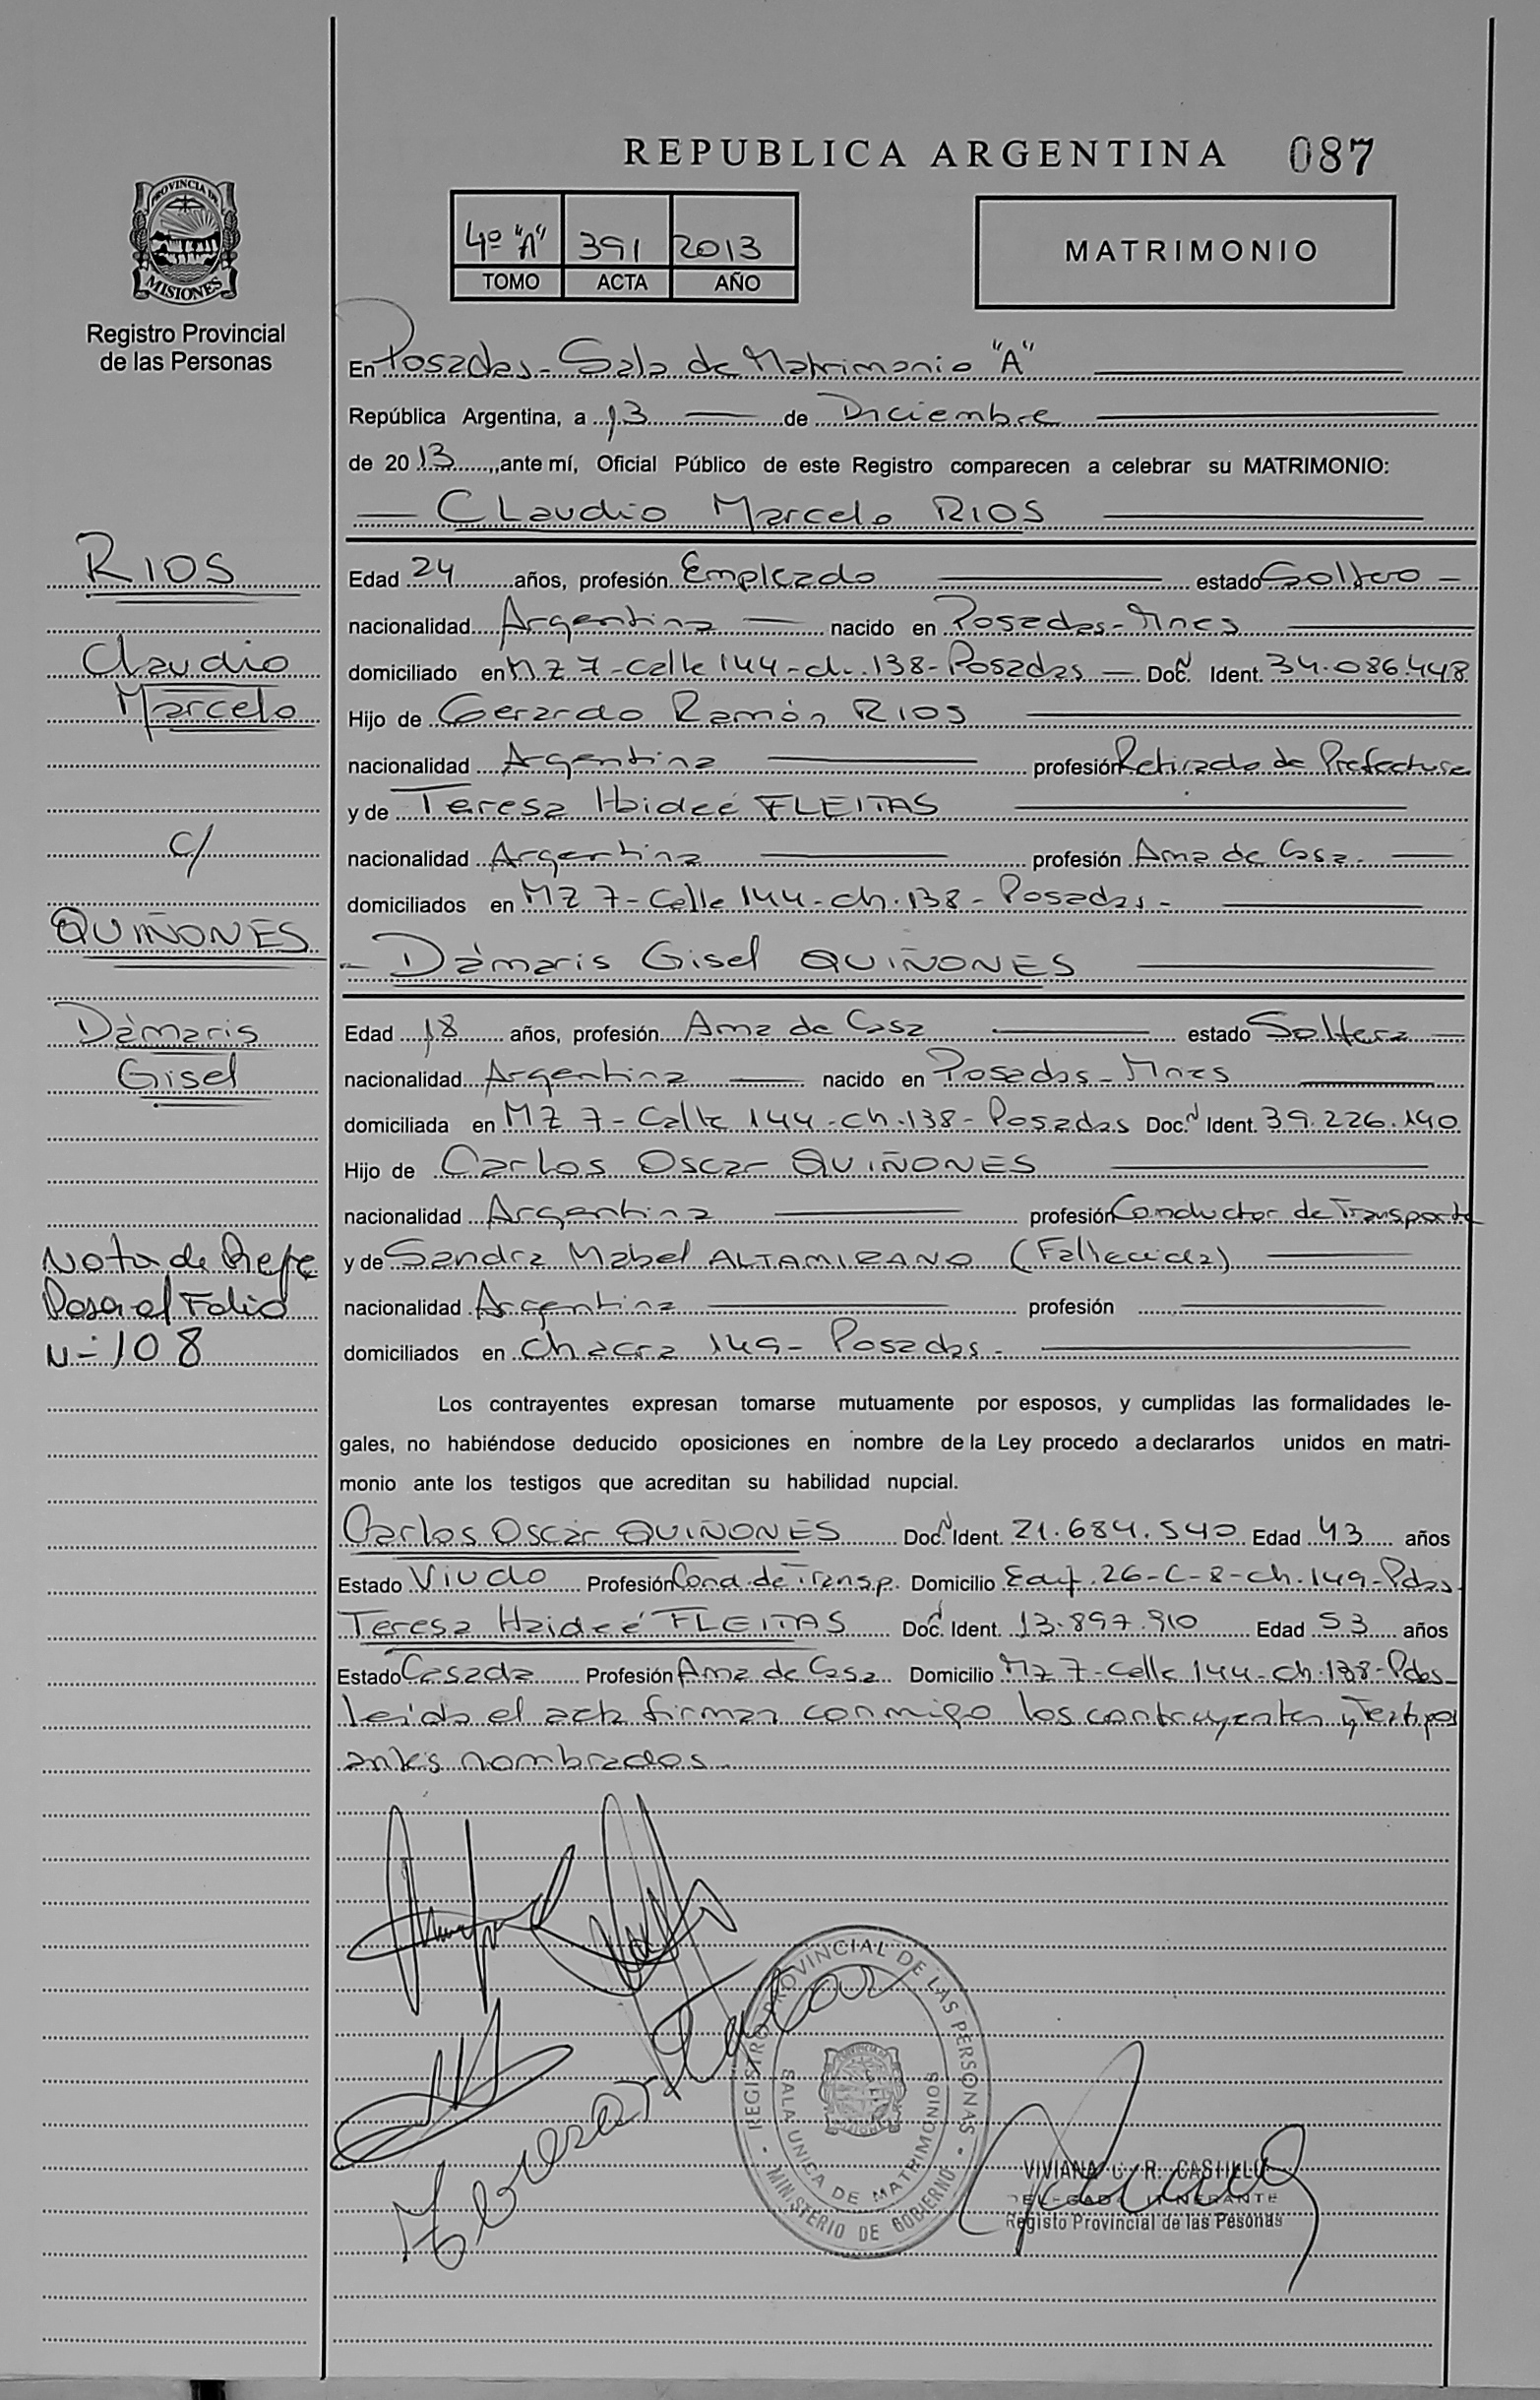 REPUBLICA ARGENTINA 087
4º "A" 391 2013
TOMO ACTA AÑO
MATRIMONIO
PROVINCIA DE
MISIONES
Registro Provincial
de las Personas
En Posadas - Sala de Matrimonio "A"
República Argentina, a 13 de Diciembre
de 2013, ante mí, Oficial Público de este Registro comparecen a celebrar su MATRIMONIO:
Claudio Marcelo RIOS
RIOS
Claudio
Marcelo
c/
QUIÑONES
Dámaris
Gisel
Nota de Refe
Pasa al Folio
Nº 108
Edad 24 años, profesión Empleado estado Soltero -
nacionalidad Argentina nacido en Posadas - Mnes
domiciliado en MZ 7 - Calle 144 - ch. 138 - Posadas - Doc. N Ident. 34.086.448
Hijo de Gerardo Ramón RIOS
nacionalidad Argentina profesión Retirado de Prefectura
y de Teresa Haideé FLEITAS
nacionalidad Argentina profesión Ama de Casa -
domiciliados en MZ 7 - Calle 144 - ch. 138 - Posadas -
- Dámaris Gisel QUIÑONES
Edad 18 años, profesión Ama de Casa estado Soltera
nacionalidad Argentina nacido en Posadas - Mnes
domiciliada en MZ 7 - Calle 144 - ch. 138 - Posadas Doc. N Ident. 39.226.140
Hijo de Carlos Oscar QUIÑONES
nacionalidad Argentina profesión Conductor de Transporte
y de Sandra Mabel ALTAMIRANO (Fallecida)
nacionalidad Argentina profesión
domiciliados en Chacra 149 - Posadas -
Los contrayentes expresan tomarse mutuamente por esposos, y cumplidas las formalidades le-
gales, no habiéndose deducido oposiciones en nombre de la Ley procedo a declararlos unidos en matri-
monio ante los testigos que acreditan su habilidad nupcial.
Carlos Oscar QUIÑONES Doc. N Ident. 21.684.540 Edad 43 años
Estado Viudo Profesión Cond. de Transp. Domicilio Edif. 26 - C - 8 - ch. 149 - Pdas.
Teresa Haideé FLEITAS Doc. Ident. 13.897.910 Edad 53 años
Estado Casada Profesión Ama de Casa Domicilio Mz 7 - Calle 144 - ch. 138 - Pdas -
leída el acta firman conmigo los contrayentes y Testigos
antes nombrados -
REGISTRO PROVINCIAL DE LAS PERSONAS
SALA UNICA DE MATRIMONIOS
MINISTERIO DE GOBIERNO
VIVIANA C. R. CASTILLO
DELEGADA ITINERANTE
Registo Provincial de las Pesonas